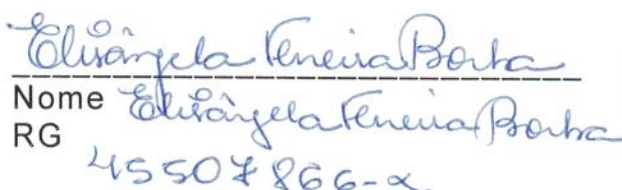 Elisângela Ferreira Borba
Nome Elisângela Ferreira Borba
RG
45507866-x